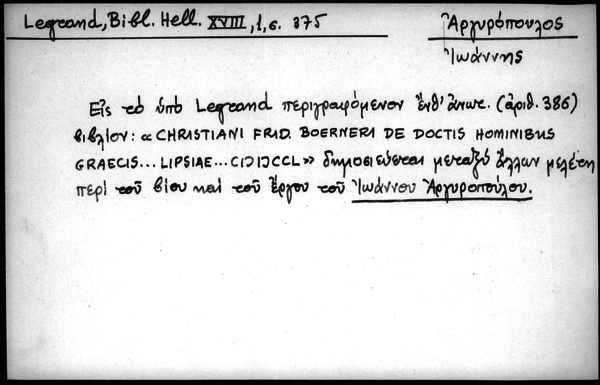 Legrand, Bibl. Hell. XVIII, 1, σ. 375
Ἀργυρόπουλος
Ἰωάννης
Εἰς τὸ ὑπὸ Legrand περιγραφόμενον ἔνθ' ἀνωτ. (ἀριθ. 386)
βιβλίον: « CHRISTIANI FRID. BOERNERI DE DOCTIS HOMINIBUS
GRAECIS... LIPSIAE... CIƆIƆCCL » δημοσιεύεται μεταξὺ ἄλλων μελέτη
περὶ τοῦ βίου καὶ τοῦ ἔργου τοῦ Ἰωάννου Ἀργυροπούλου.